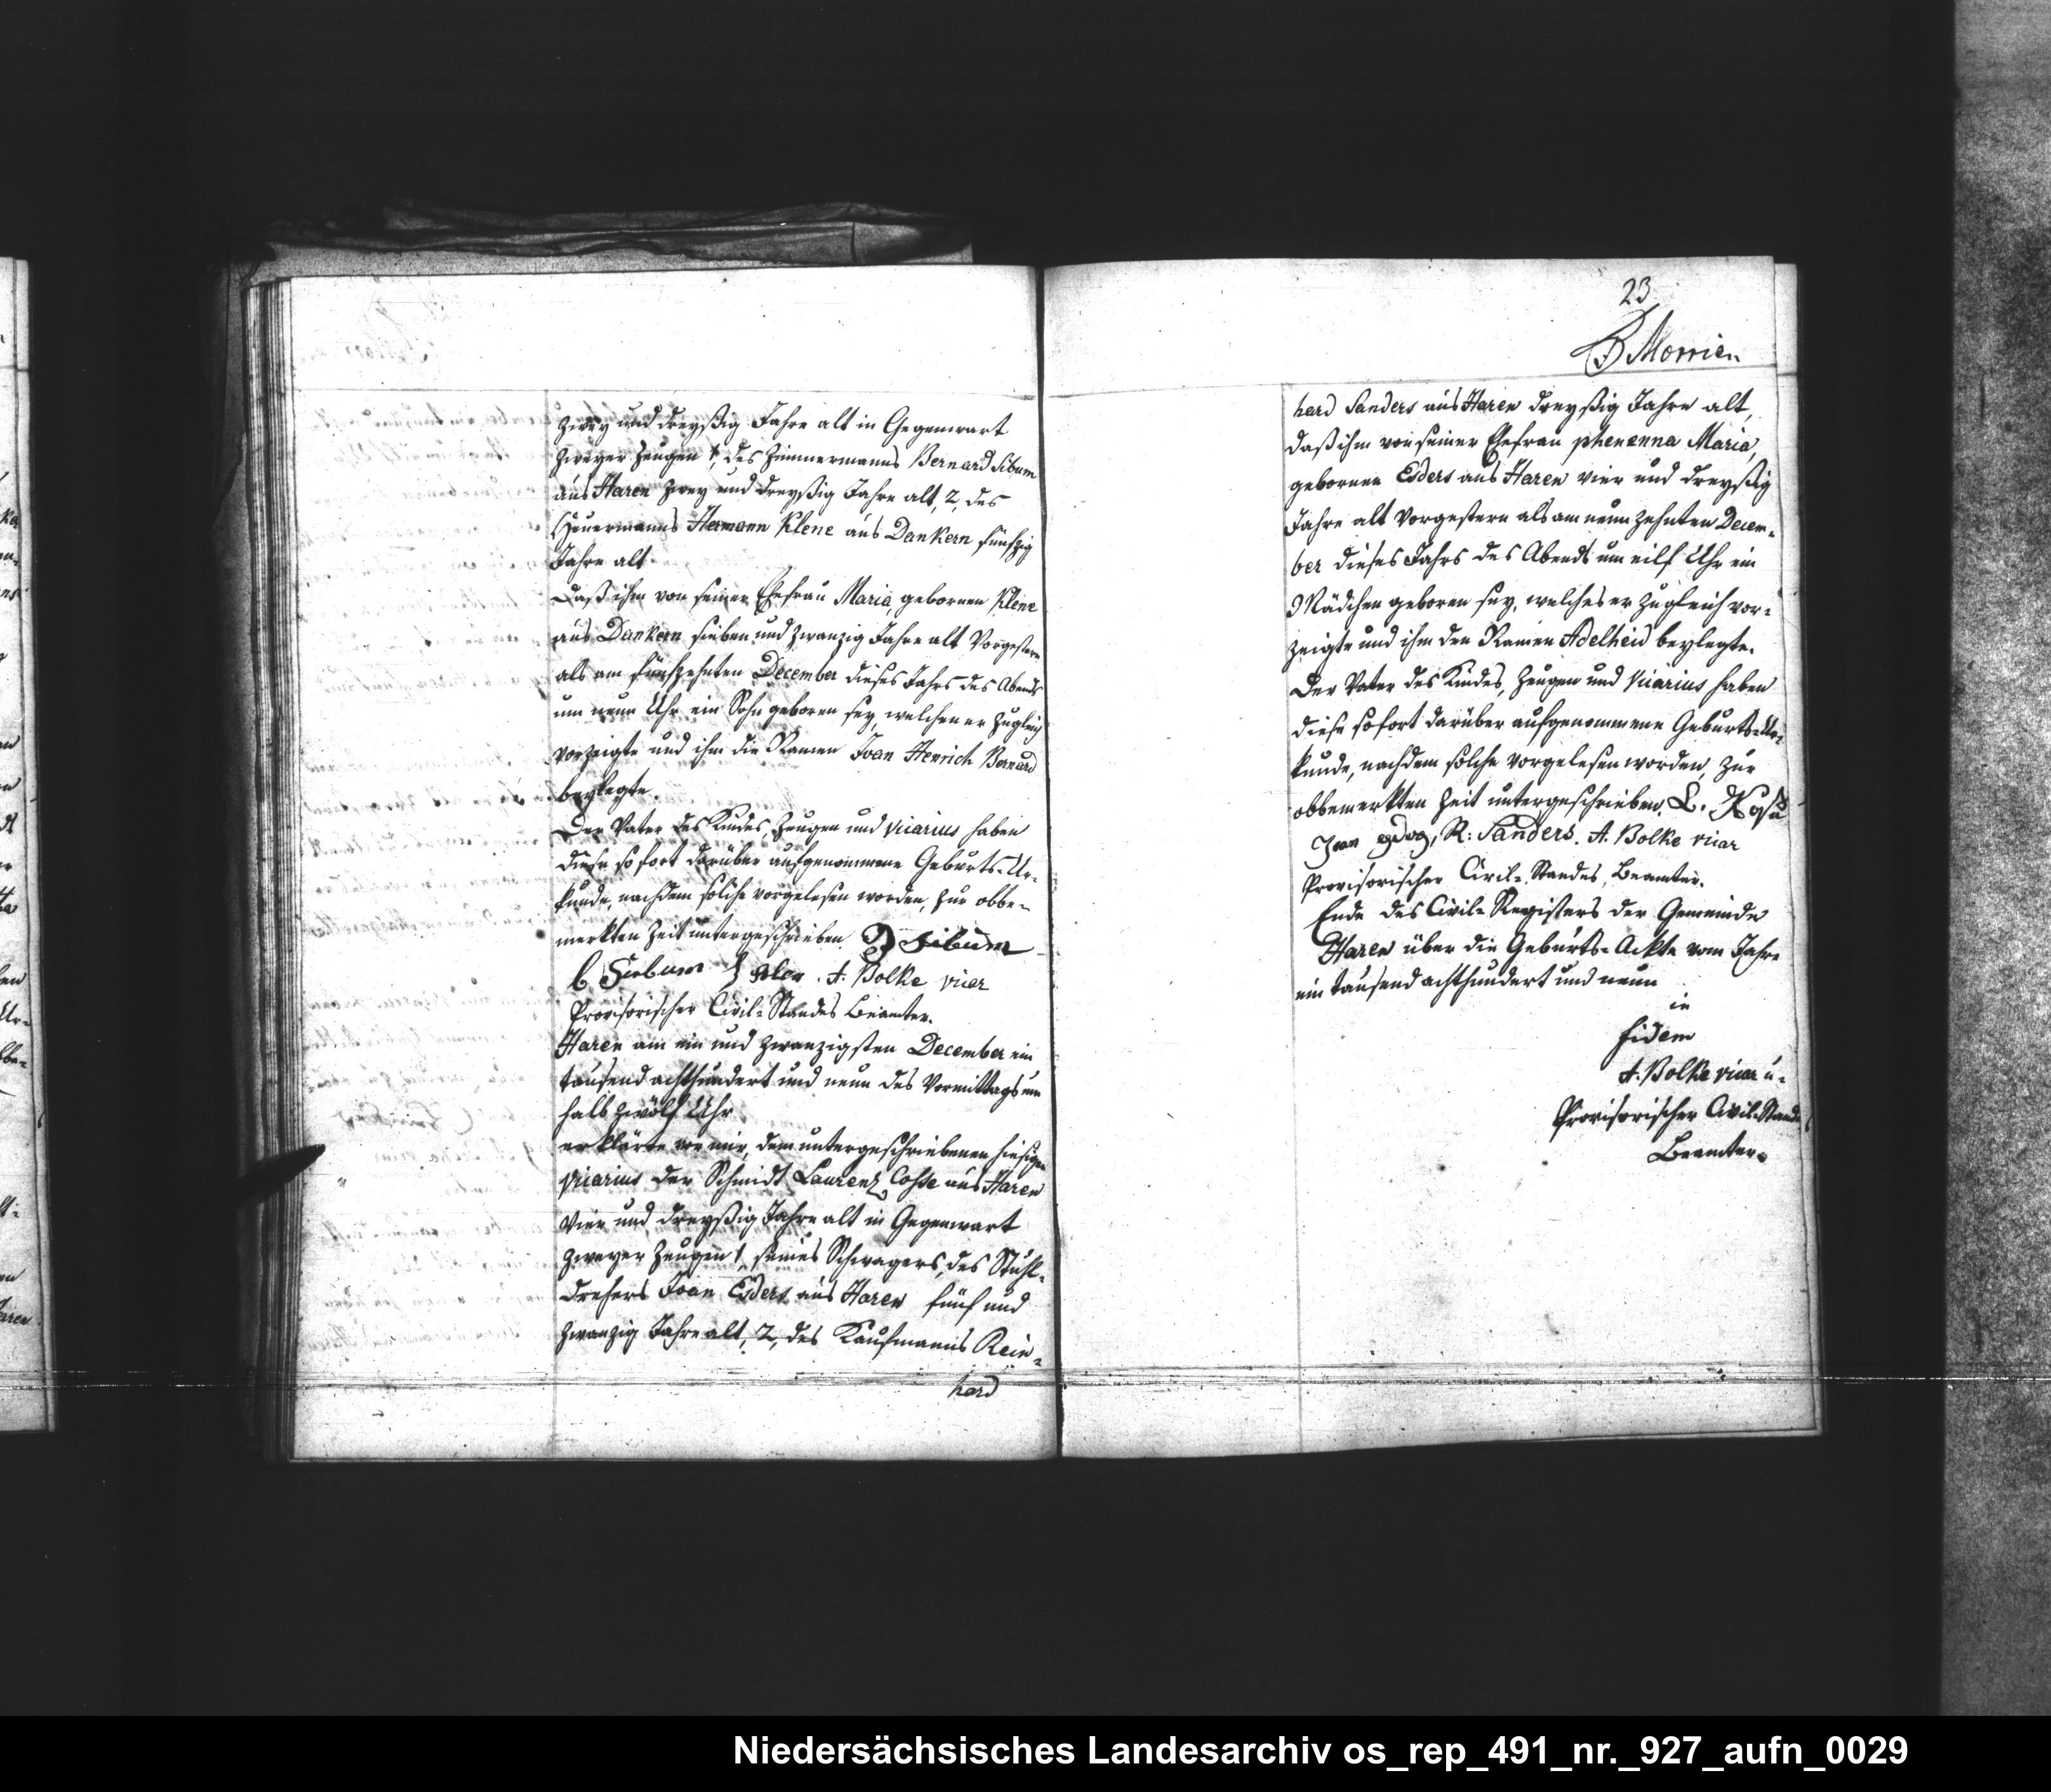 zwey und dreyßig Jahre alt in Gegenwart
zweyer Zeugen 1, des Zimmermanns Bernard Sibum
aus Haren zwey und dreyßig Jahre alt, 2, des
Heuermanns Hermann Klene aus Dankern fünfzig
Jahre alt.
Daß ihm von seiner Ehefrau Maria, gebornen Klene
aus Dankern sieben und zwanzig Jahre alt Vorgestern
als am fünfzehnten December dieses Jahrs des Abends
um neun Uhr ein Sohn geboren sey, welchen er zugleich
vorzeigte und ihm die Namen Joan Henrich Bernard
beylegte.
Der Vater des Kindes, Zeugen und Vicarius haben
diese sofort darüber aufgenommene Geburts-Ur-
kunde, nachdem solche vorgelesen worden, zur obbe-
merkten Zeit untergeschrieben. Sibum
b Siebum A. Bolke vicar
Provisorischer Civil-Standes Beamter.
Haren am ein und zwanzigsten December ein
tausend achthundert und neun des Vormittags um
halb zwölf Uhr
erklärte vor mir, dem untergeschriebenen hiesigen
Vicarius der Schmidt Laurenz Cosse aus Haren
vier und dreyßig Jahre alt in Gegenwart
zweyer Zeugen 1, seines Schwagers, des Stuhl-
drehers Joan Esders aus Haren fünf und
zwanzig Jahre alt, 2, des Kaufmanns Rein-
hard
23
Morrien
hard Sanders aus Haren dreyßig Jahre alt,
daß ihm von seiner Ehefrau phenenna Maria,
gebornen Esders aus Haren vier und dreyßig
Jahre alt Vorgestern als am neun zehnten Decem-
ber dieses Jahrs des Abends um eilf Uhr ein
Mädchen geboren sey, welches er zugleich vor-
zeigte und ihm den Namen Adelheid beylegte.
Der Vater des Kindes, Zeugen und Vicarius haben
diese sofort darüber aufgenommene Geburts-Ur-
kunde, nachdem solche vorgelesen worden, zur
obbemerkten Zeit untergeschrieben. L.
Joan R: Sanders. A. Bolke vicar
Provisorischer Civil-Standes, Beamter.
Ende des Civil-Registers der Gemeinde
Haren über die Geburts-Ackte vom Jahre
ein tausend achthundert und neun
in
fidem
A. Bolke vicar u-
Provisorischer Civil-Stands
Beamter.
Niedersächsisches Landesarchiv os_rep_491_nr._927_aufn_0029